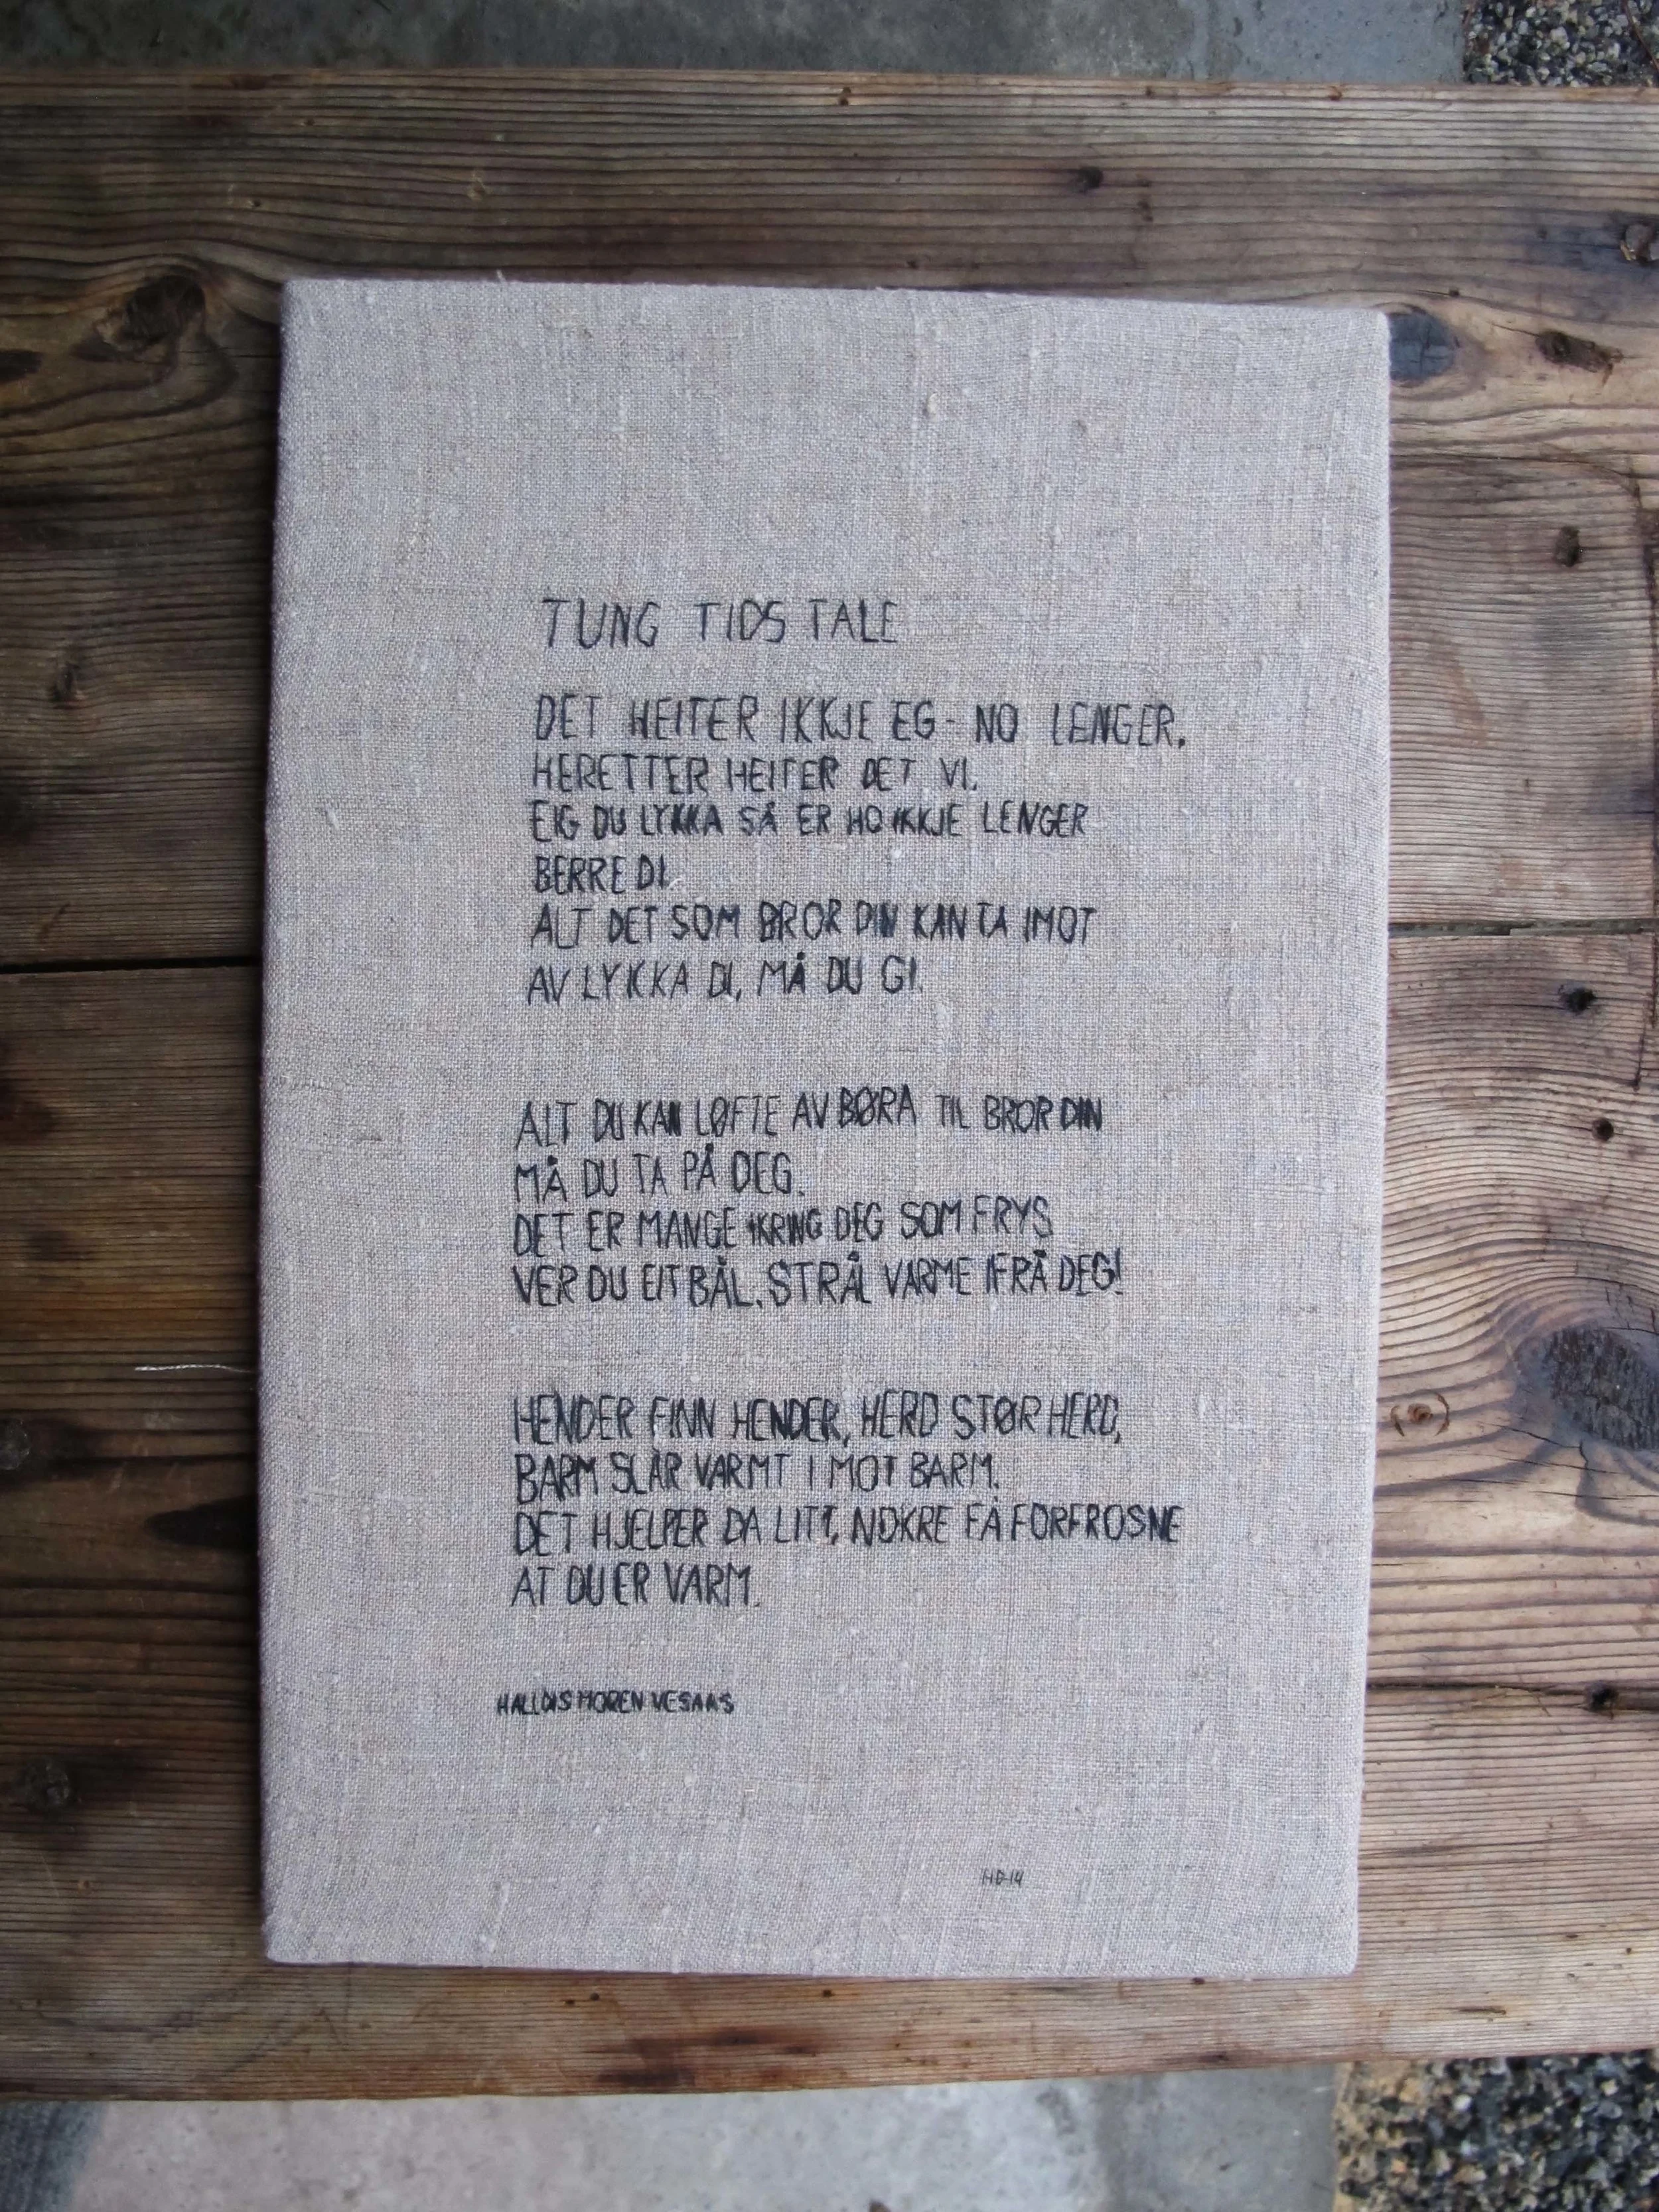 TUNG TIDS TALE
DET HEITER IKKJE EG - NO LENGER.
HERETTER HEITER DET VI.
EIG DU LYKKA SÅ ER HO IKKJE LENGER
BERRE DI.
ALT DET SOM BROR DIN KAN TA IMOT
AV LYKKA DI, MÅ DU GI.
ALT DU KAN LØFTE AV BØRA TIL BROR DIN
MÅ DU TA PÅ DEG.
DET ER MANGE IKRING DEG SOM FRYS
VER DU EIT BÅL, STRÅL VARME IFRÅ DEG!
HENDER FINN HENDER, HERD STØR HERD,
BARM SLÅR VARMT I MOT BARM.
DET HJELPER DA LITT, NOKRE FÅ FORFROSNE
AT DU ER VARM.
HALLDIS MOREN VESAAS
HD-14